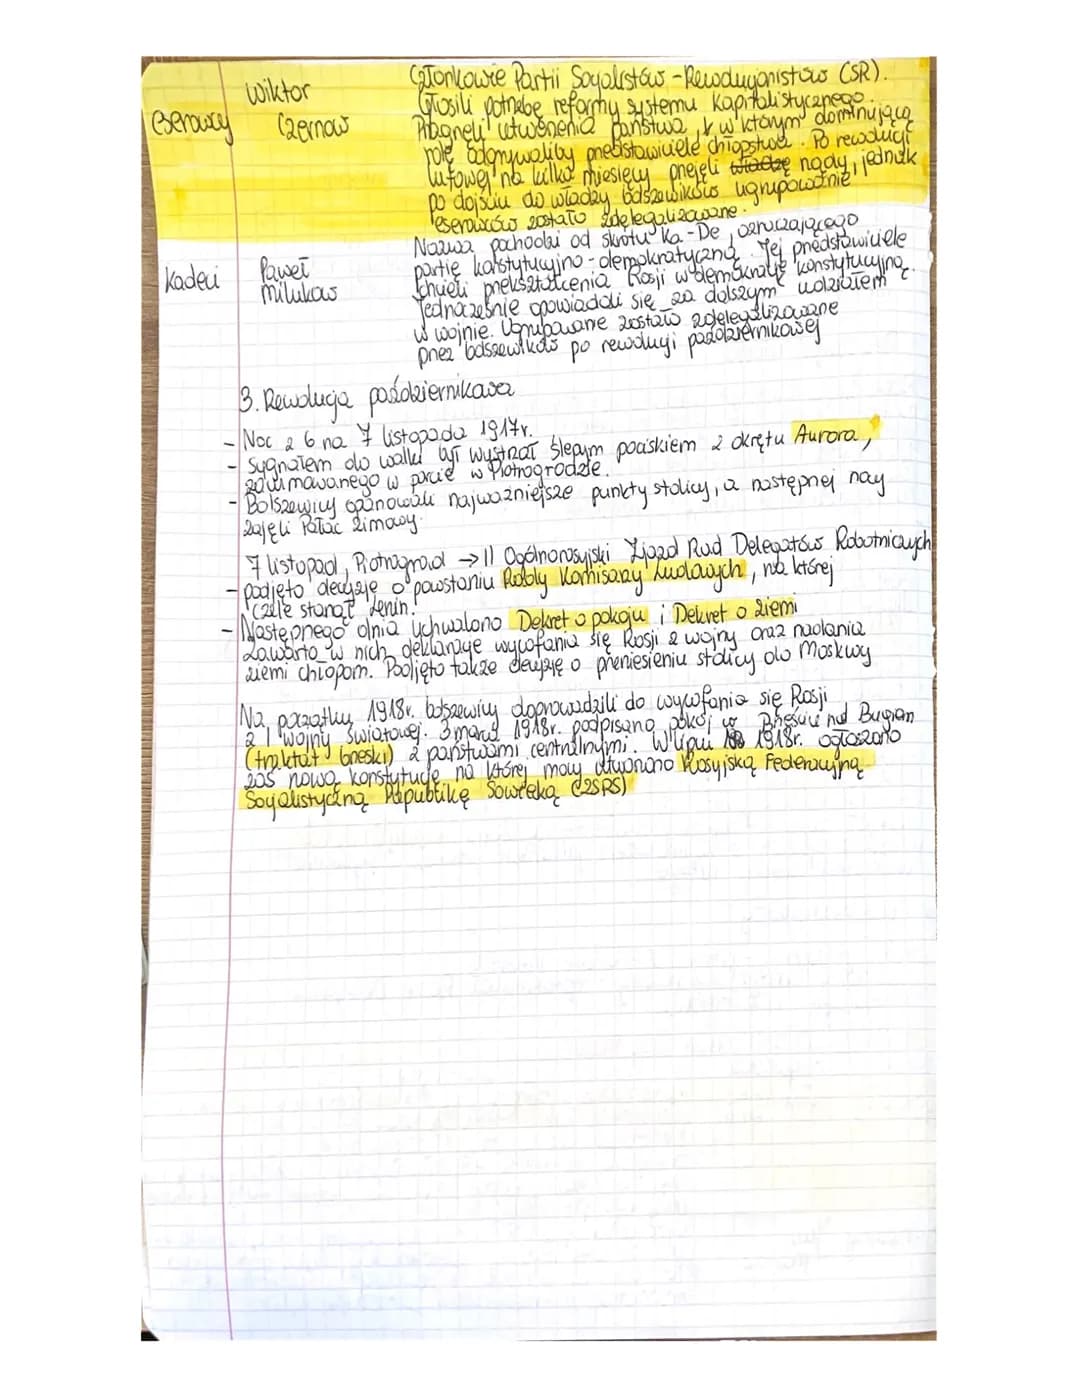 eserowcy
Wiktor
Czernow
Członkowie Partii Socjalistów-Rewolucjonistów (SR).
Głosili potrzebę reformy systemu kapitalistycznego.
Pragnęli utworzenia państwa, w którym dominującą
rolę odgrywaliby przedstawiciele chłopstwa. Po rewolucji
lutowej na kilka miesięcy przejęli władzę rządy, jednak
po dojściu do władzy bolszewików ugrupowanie
eserowców zostało zdelegalizowane.
Kadeci
Paweł
Milukow
Nazwa pochodzi od skrótu Ka-De, oznaczającego
partię konstytucyjno-demokratyczną. Jej przedstawiciele
chcieli przekształcenia Rosji w demokrację konstytucyjną.
Jednocześnie opowiadali się za dalszym udziałem
w wojnie. Ugrupowanie zostało zdelegalizowane
przez bolszewików po rewolucji październikowej
3. Rewolucja październikowa
- Noc z 6 na 7 listopada 1917r.
- Sygnałem do walki był wystrzał ślepym pociskiem z okrętu Aurora,
zacumowanego w porcie w Piotrogrodzie.
- Bolszewicy opanowali najważniejsze punkty stolicy, a następnej nocy
zajęli Pałac Zimowy.
7 listopad, Piotrogrod → II Ogólnorosyjski Zjazd Rad Delegatów Robotniczych
- podjęto decyzję o powstaniu Rady Komisarzy Ludowych, na której
czele stanął Lenin.
- Następnego dnia uchwalono Dekret o pokoju i Dekret o ziemi
Zawarto w nich deklarację wycofania się Rosji z wojny oraz nadania
ziemi chłopom. Podjęto także decyzję o przeniesieniu stolicy do Moskwy
Na początku 1918r. bolszewicy doprowadzili do wycofania się Rosji
z I wojny światowej. 3 marca 1918r. podpisano pokój w Brześciu nad Bugiem
(traktat brzeski) z państwami centralnymi. W lipcu 1918r. ogłoszono
zaś nową konstytucję na której mocy utworzono Rosyjską Federacyjną
Socjalistyczną Republikę Sowiecką (RSRS)